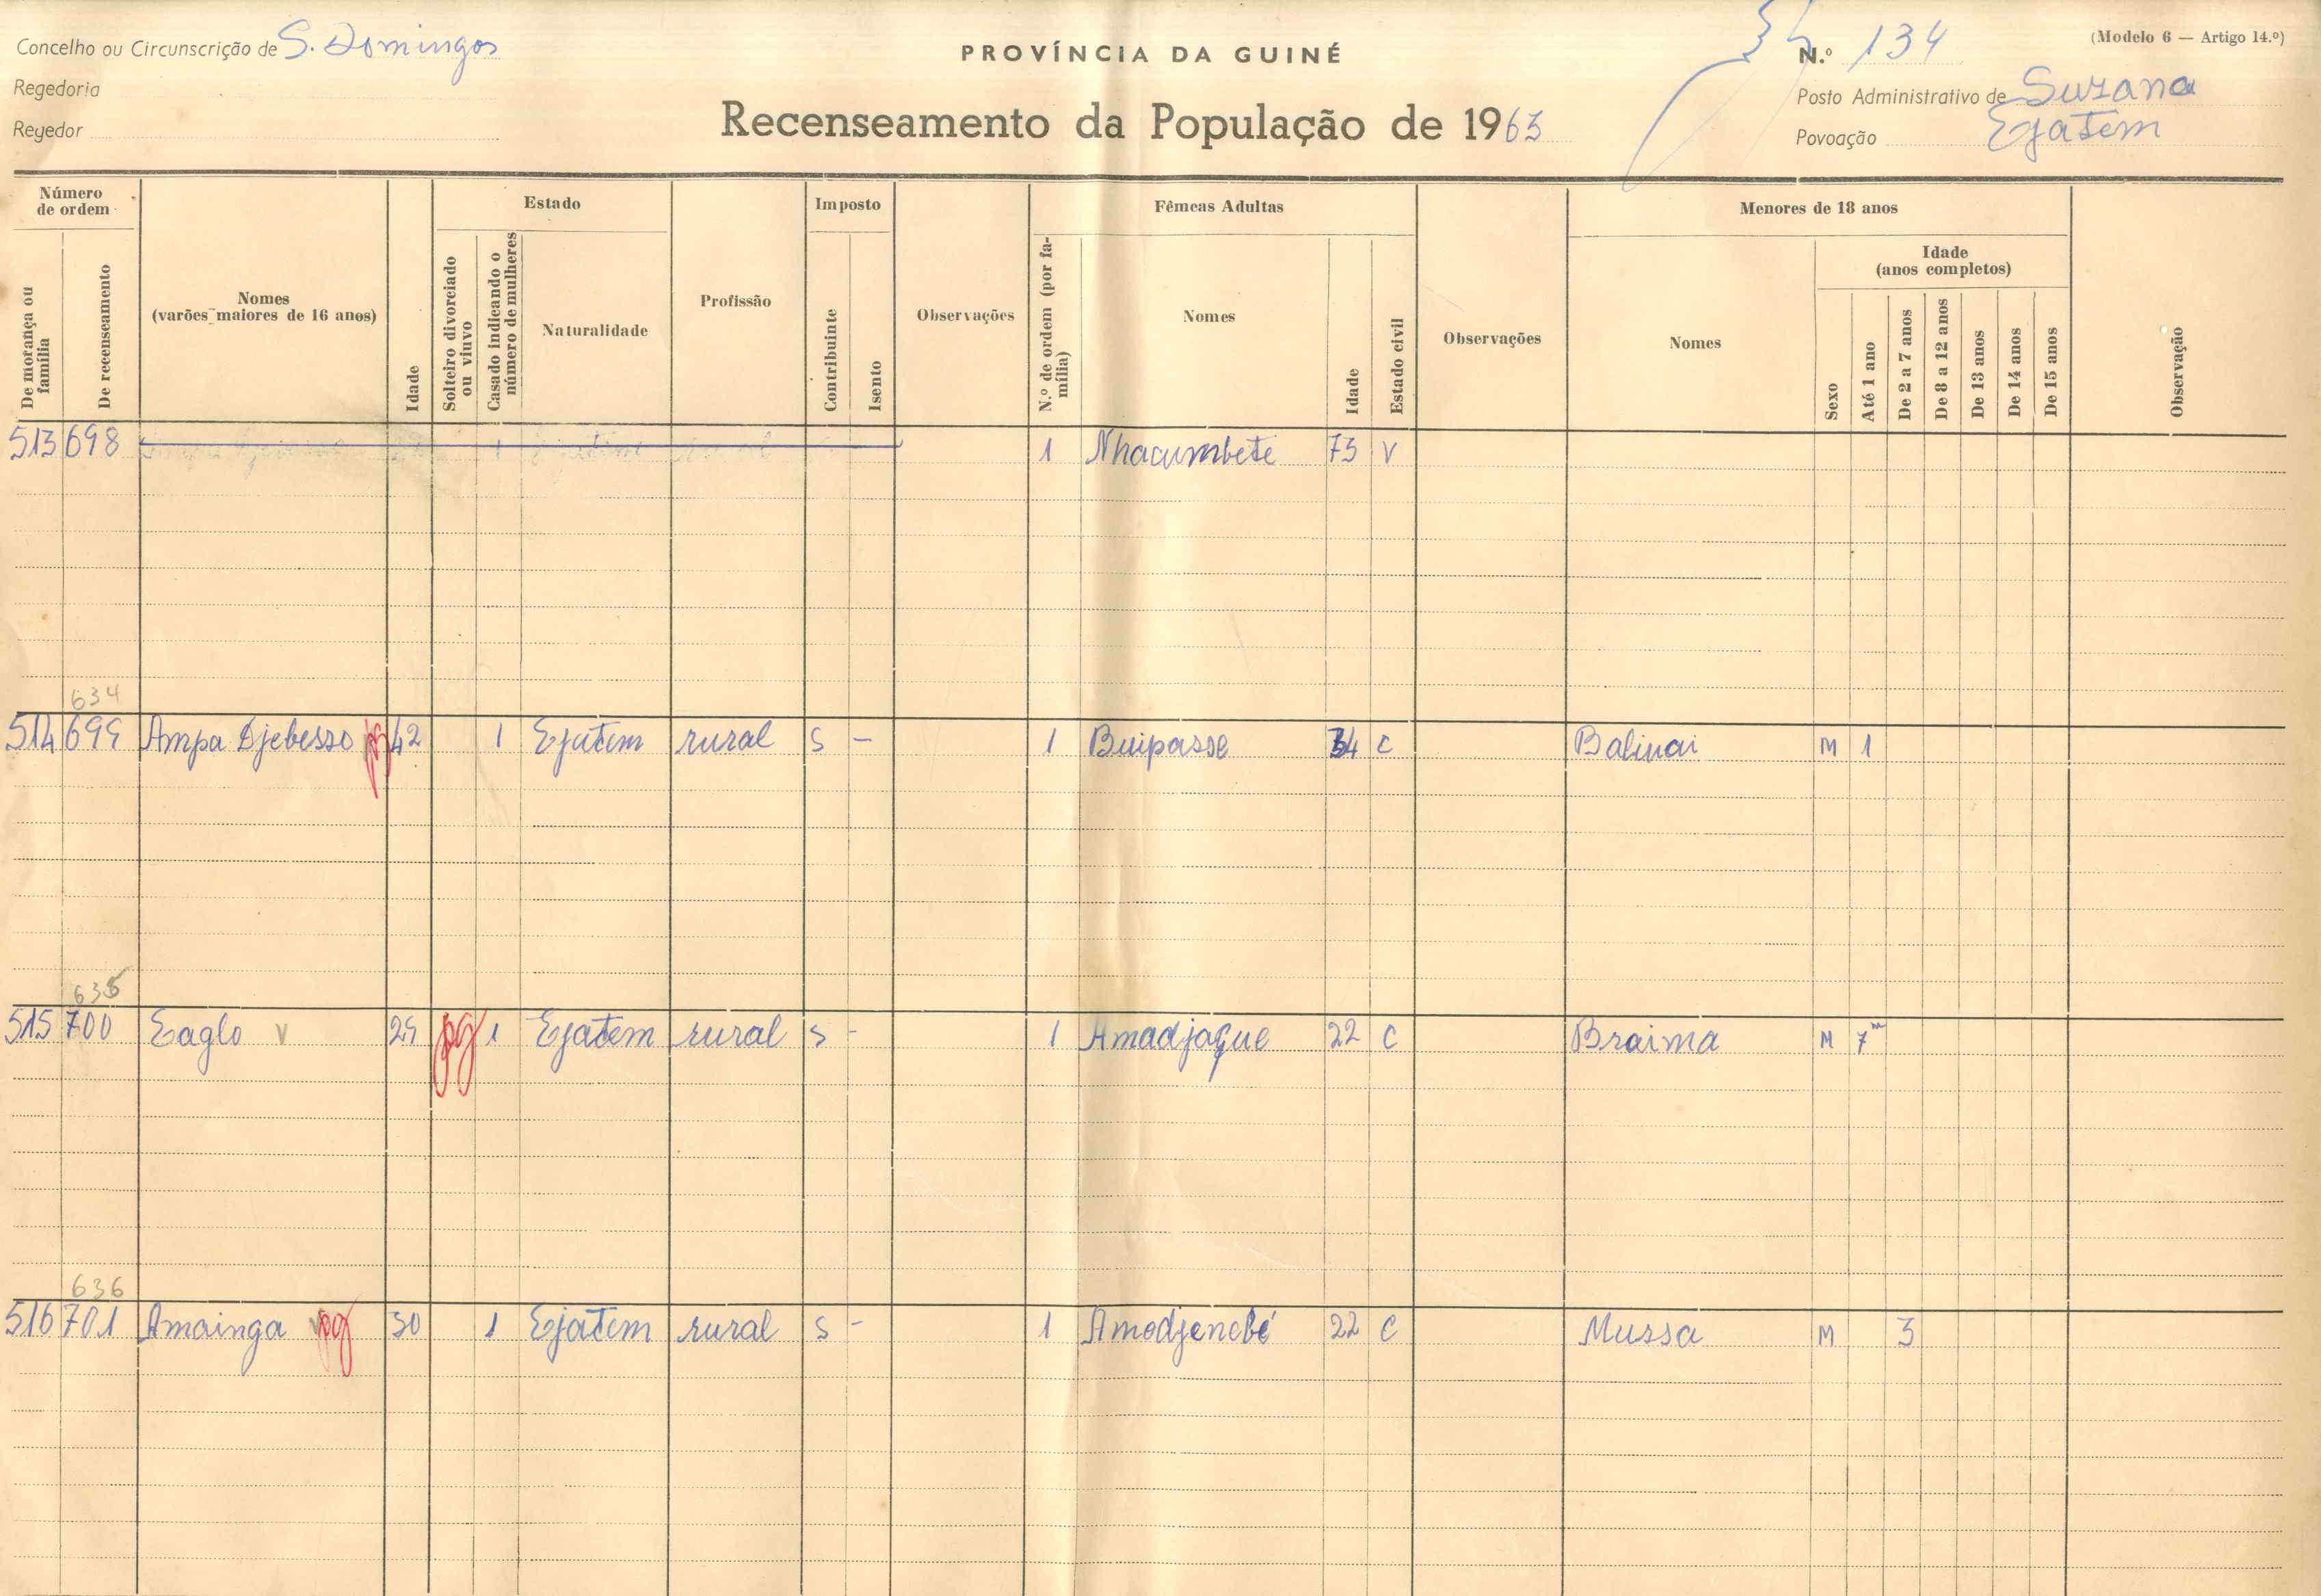 Concelho ou Circunscrição de S. Domingos
Regedoria
Regedor
PROVÍNCIA DA GUINÉ
Recenseamento da População de 1963
N.º 134
(Modelo 6 — Artigo 14.º)
Posto Administrativo de Suzana
Povoação Ejatem
Número de ordem
De morança ou família
De recenseamento
Nomes
(varões maiores de 16 anos)
Idade
Estado
Solteiro divorciado ou viuvo
Casado indicando o número de mulheres
Naturalidade
Profissão
Imposto
Contribuinte
Isento
Observações
Fêmeas Adultas
N.º de ordem (por família)
Nomes
Idade
Estado civil
Observações
Menores de 18 anos
Nomes
Sexo
Idade
(anos completos)
Até 1 ano
De 2 a 7 anos
De 8 a 12 anos
De 13 anos
De 14 anos
De 15 anos
Observação
513 698 1 1 Nhacumbete 73 V
634
514 699 Ampa Djebesso pg 42 1 Ejatem rural S - 1 Buipasse 34 C Balinai M 1
635
515 700 Eaglo V 29 pg 1 Ejatem rural S - 1 Amadjaque 22 C Braima M 7m
636
516 701 Amainga pg 30 1 Ejatem rural S - 1 Amodjenebé 22 C Mussa M 3